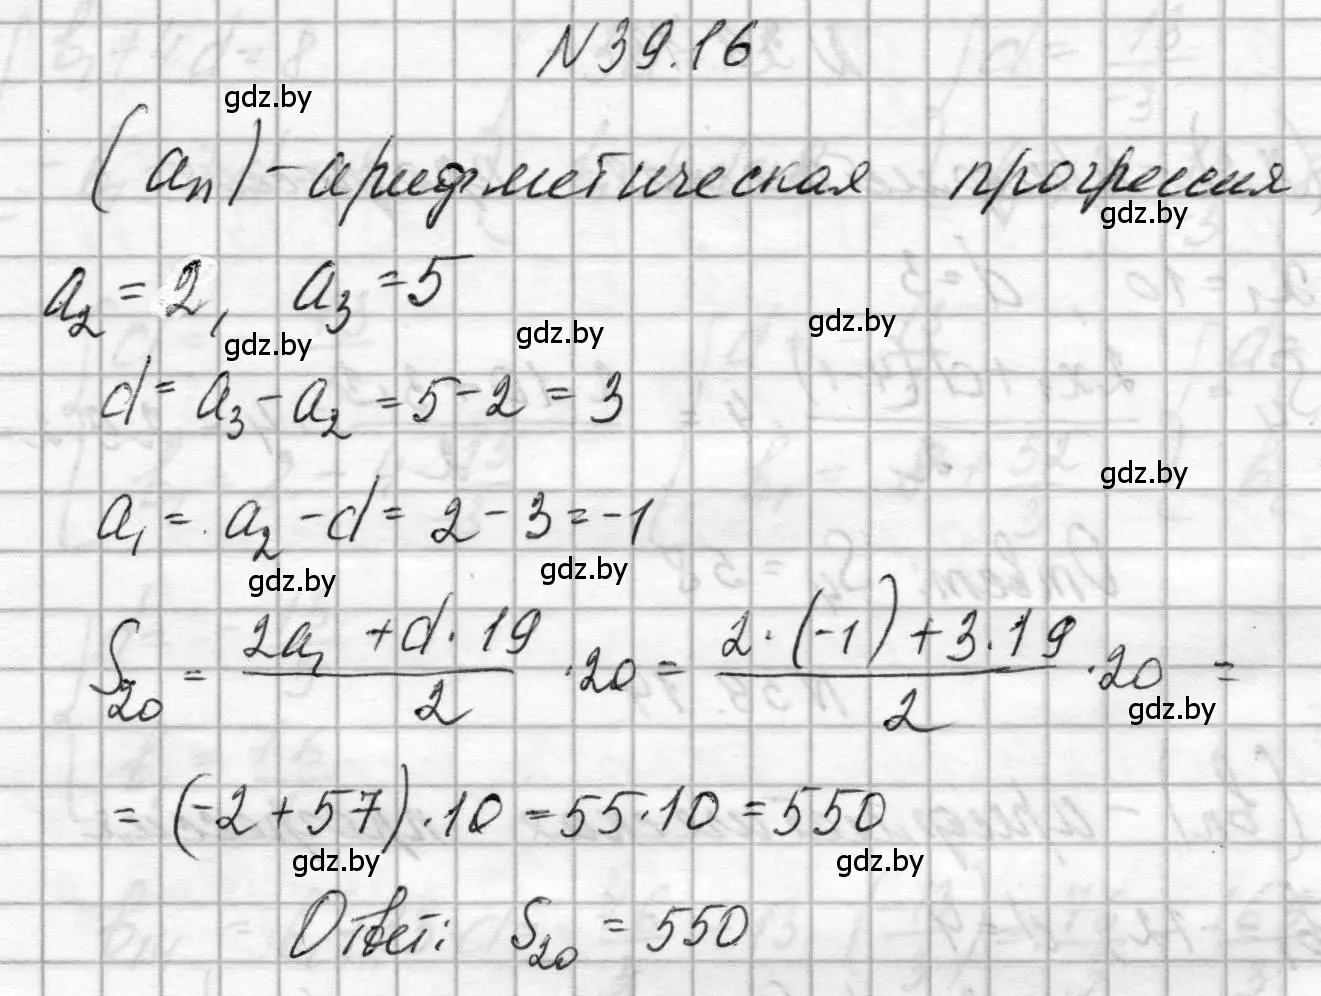 N 39.16
gdz.by
(aₙ) - арифметическая прогрессия
gdz.by
a₂ = 2, a₃ = 5
gdz.by gdz.by gdz.by
d = a₃ - a₂ = 5 - 2 = 3
gdz.by
a₁ = a₂ - d = 2 - 3 = -1
gdz.by gdz.by
S₂₀ = (2a₁ + d · 19)/2 · 20 = (2 · (-1) + 3 · 19)/2 · 20 =
gdz.by
= (-2 + 57) · 10 = 55 · 10 = 550
gdz.by gdz.by
Ответ: S₂₀ = 550